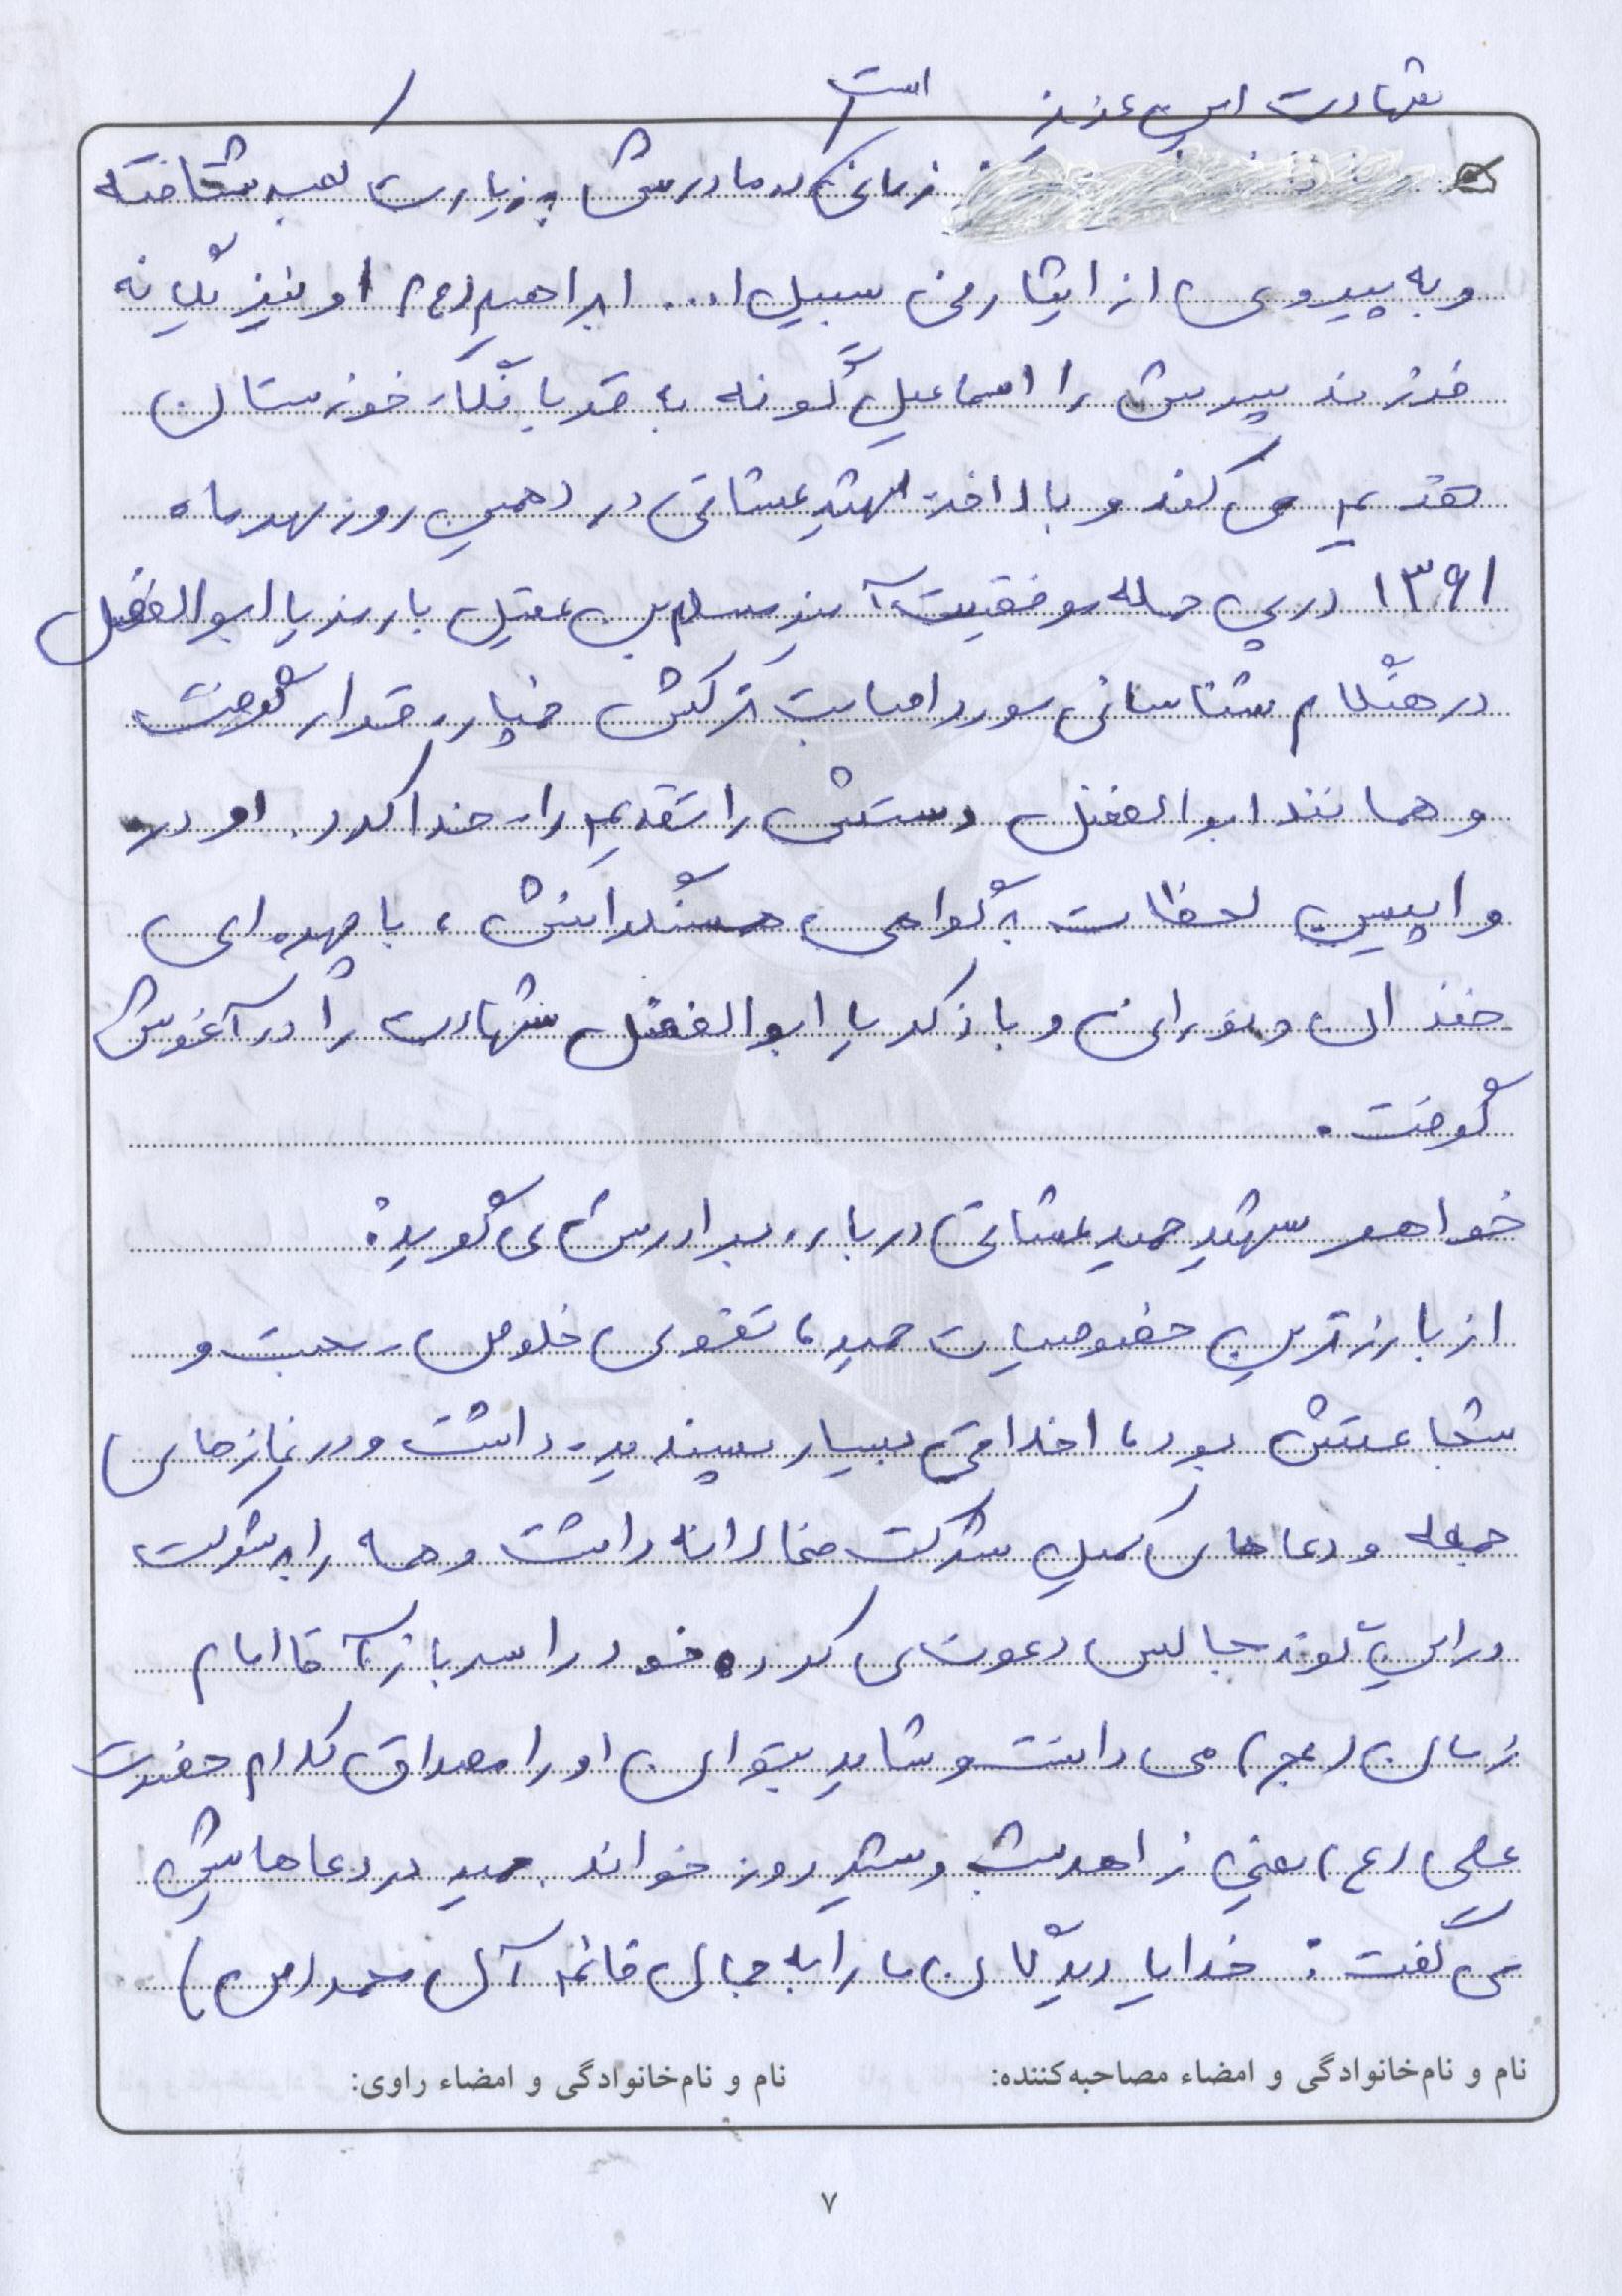 شهادت این عزیز است
زمانی که مادرش به زیارت کعبه شتافته
و به پیروی از ایثار فی سبیل ا... ابراهیم (ع) او نیز یگانه
فرزند پسرش را اسماعیل گونه به قربانگاه خوزستان
تقدیم می کند و بالاخره شهید عشاقی در دهمین روز مهر ماه
۱۳۶۱ در پی حمله موفقیت آمیز مسلم بن عقیل با رمز یا ابوالفضل
در هنگام شناسائی مورد اصابت ترکش خمپاره قرار گرفت
و همانند ابوالفضل دستش را تقدیم راه خدا کرد. او در
واپسین لحظات به گواهی همسنگرانش، با چهره ای
خندان و نورانی و با ذکر یا ابوالفضل شهادت را در آغوش
گرفت.
خواهر شهید حمید عشاقی درباره برادرش می گوید:
از بارزترین خصوصیات حمید، تقوی خلوص محبت و
شجاعتش بود، اخلاقی بسیار پسندیده داشت و در نمازهای
جمعه و دعاهای کمیل شرکت فعالانه داشت و همه را به شرکت
در این گونه مجالس دعوت می کرد، خود را سرباز آقا امام
زمان (عج) می دانست و شاید بتوان او را مصداق کلام حضرت
علی (ع) یعنی زاهد شب و شیر روز خواند. حمید در دعاهایش
می گفت: خدایا دیدگان ما را به جمال قائم آل محمد (ص)
نام و نام‌خانوادگی و امضاء مصاحبه‌کننده: نام و نام‌خانوادگی و امضاء راوی:
۷